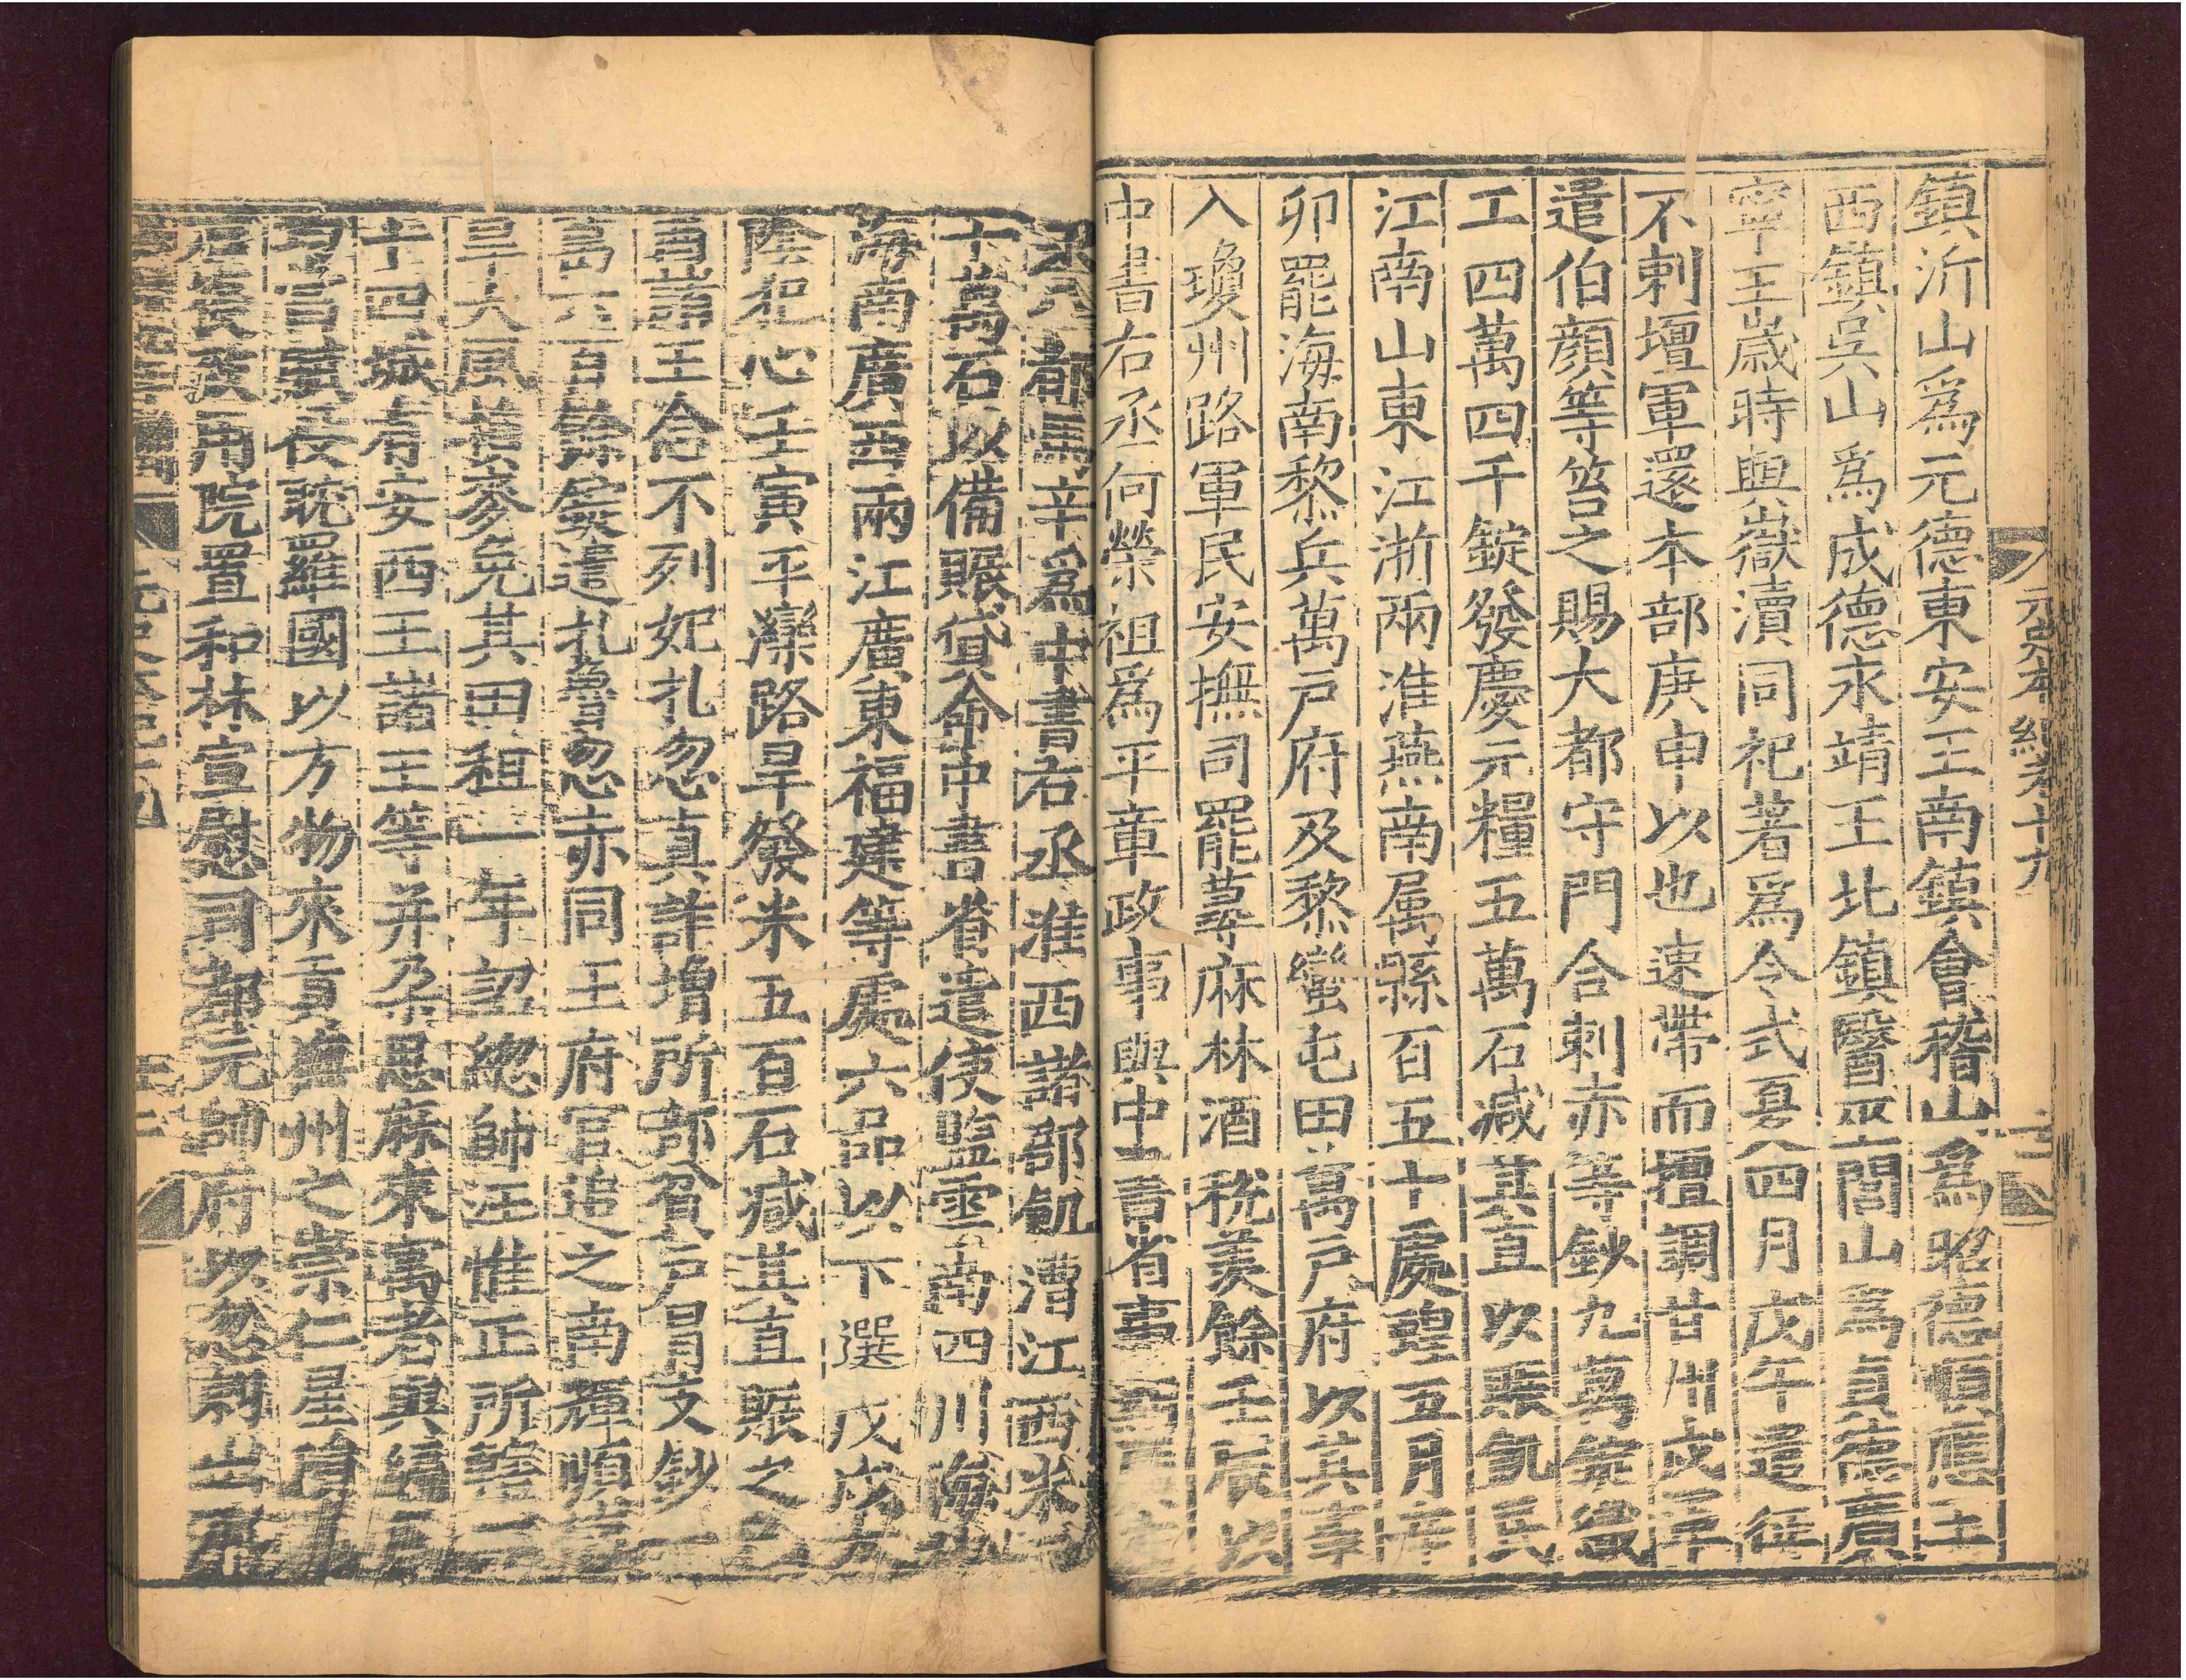 鎮沂山爲元德東安王南鎮會稽山爲昭德順應王
西鎮吳山爲成德永靖王北鎮醫巫閭山爲貞德廣
寧王歲時與嶽瀆同祀著爲令式夏四月戊午遣征
不剌壇軍還本部庚申以也速帶而擅調甘州戍軍
遣伯顔等笞之賜大都守門合剌赤等鈔九萬錠
工四萬四千錠發慶元糧五萬石減其直以賑飢民
江南山東江浙兩淮燕南属縣百五十處蝗五月
卯罷海南黎兵萬戶府及黎蠻屯田萬戶府以其事
入瓊州路軍民安撫司罷蕁麻林酒稅羨餘壬辰
中書右丞何榮祖爲平章政事與中書省事
都馬辛爲中書右丞淮西諸郡飢漕江西米
十萬石以備賑貸命中書省遣使監雲南四川海
海南廣西兩江廣東福建等處六品以下選戊戌
陰犯心壬寅平灤路旱發米五百石減其直賑之己
酉諸王念不列妃扎忽真詐增所部貧戶冒支鈔一
萬六百餘錠遣扎魯忽赤同王府官追之南輝順
旱大風損麥免其田租一年詔總師汪惟正所轄二
十四城有安西王諸王等并朵思麻來寓者與編戶
官暹使託羅國以方物來貢雄州之崇仁星
用院置和林宣慰司都元帥府以忽剌出
元史本紀卷十九
十二